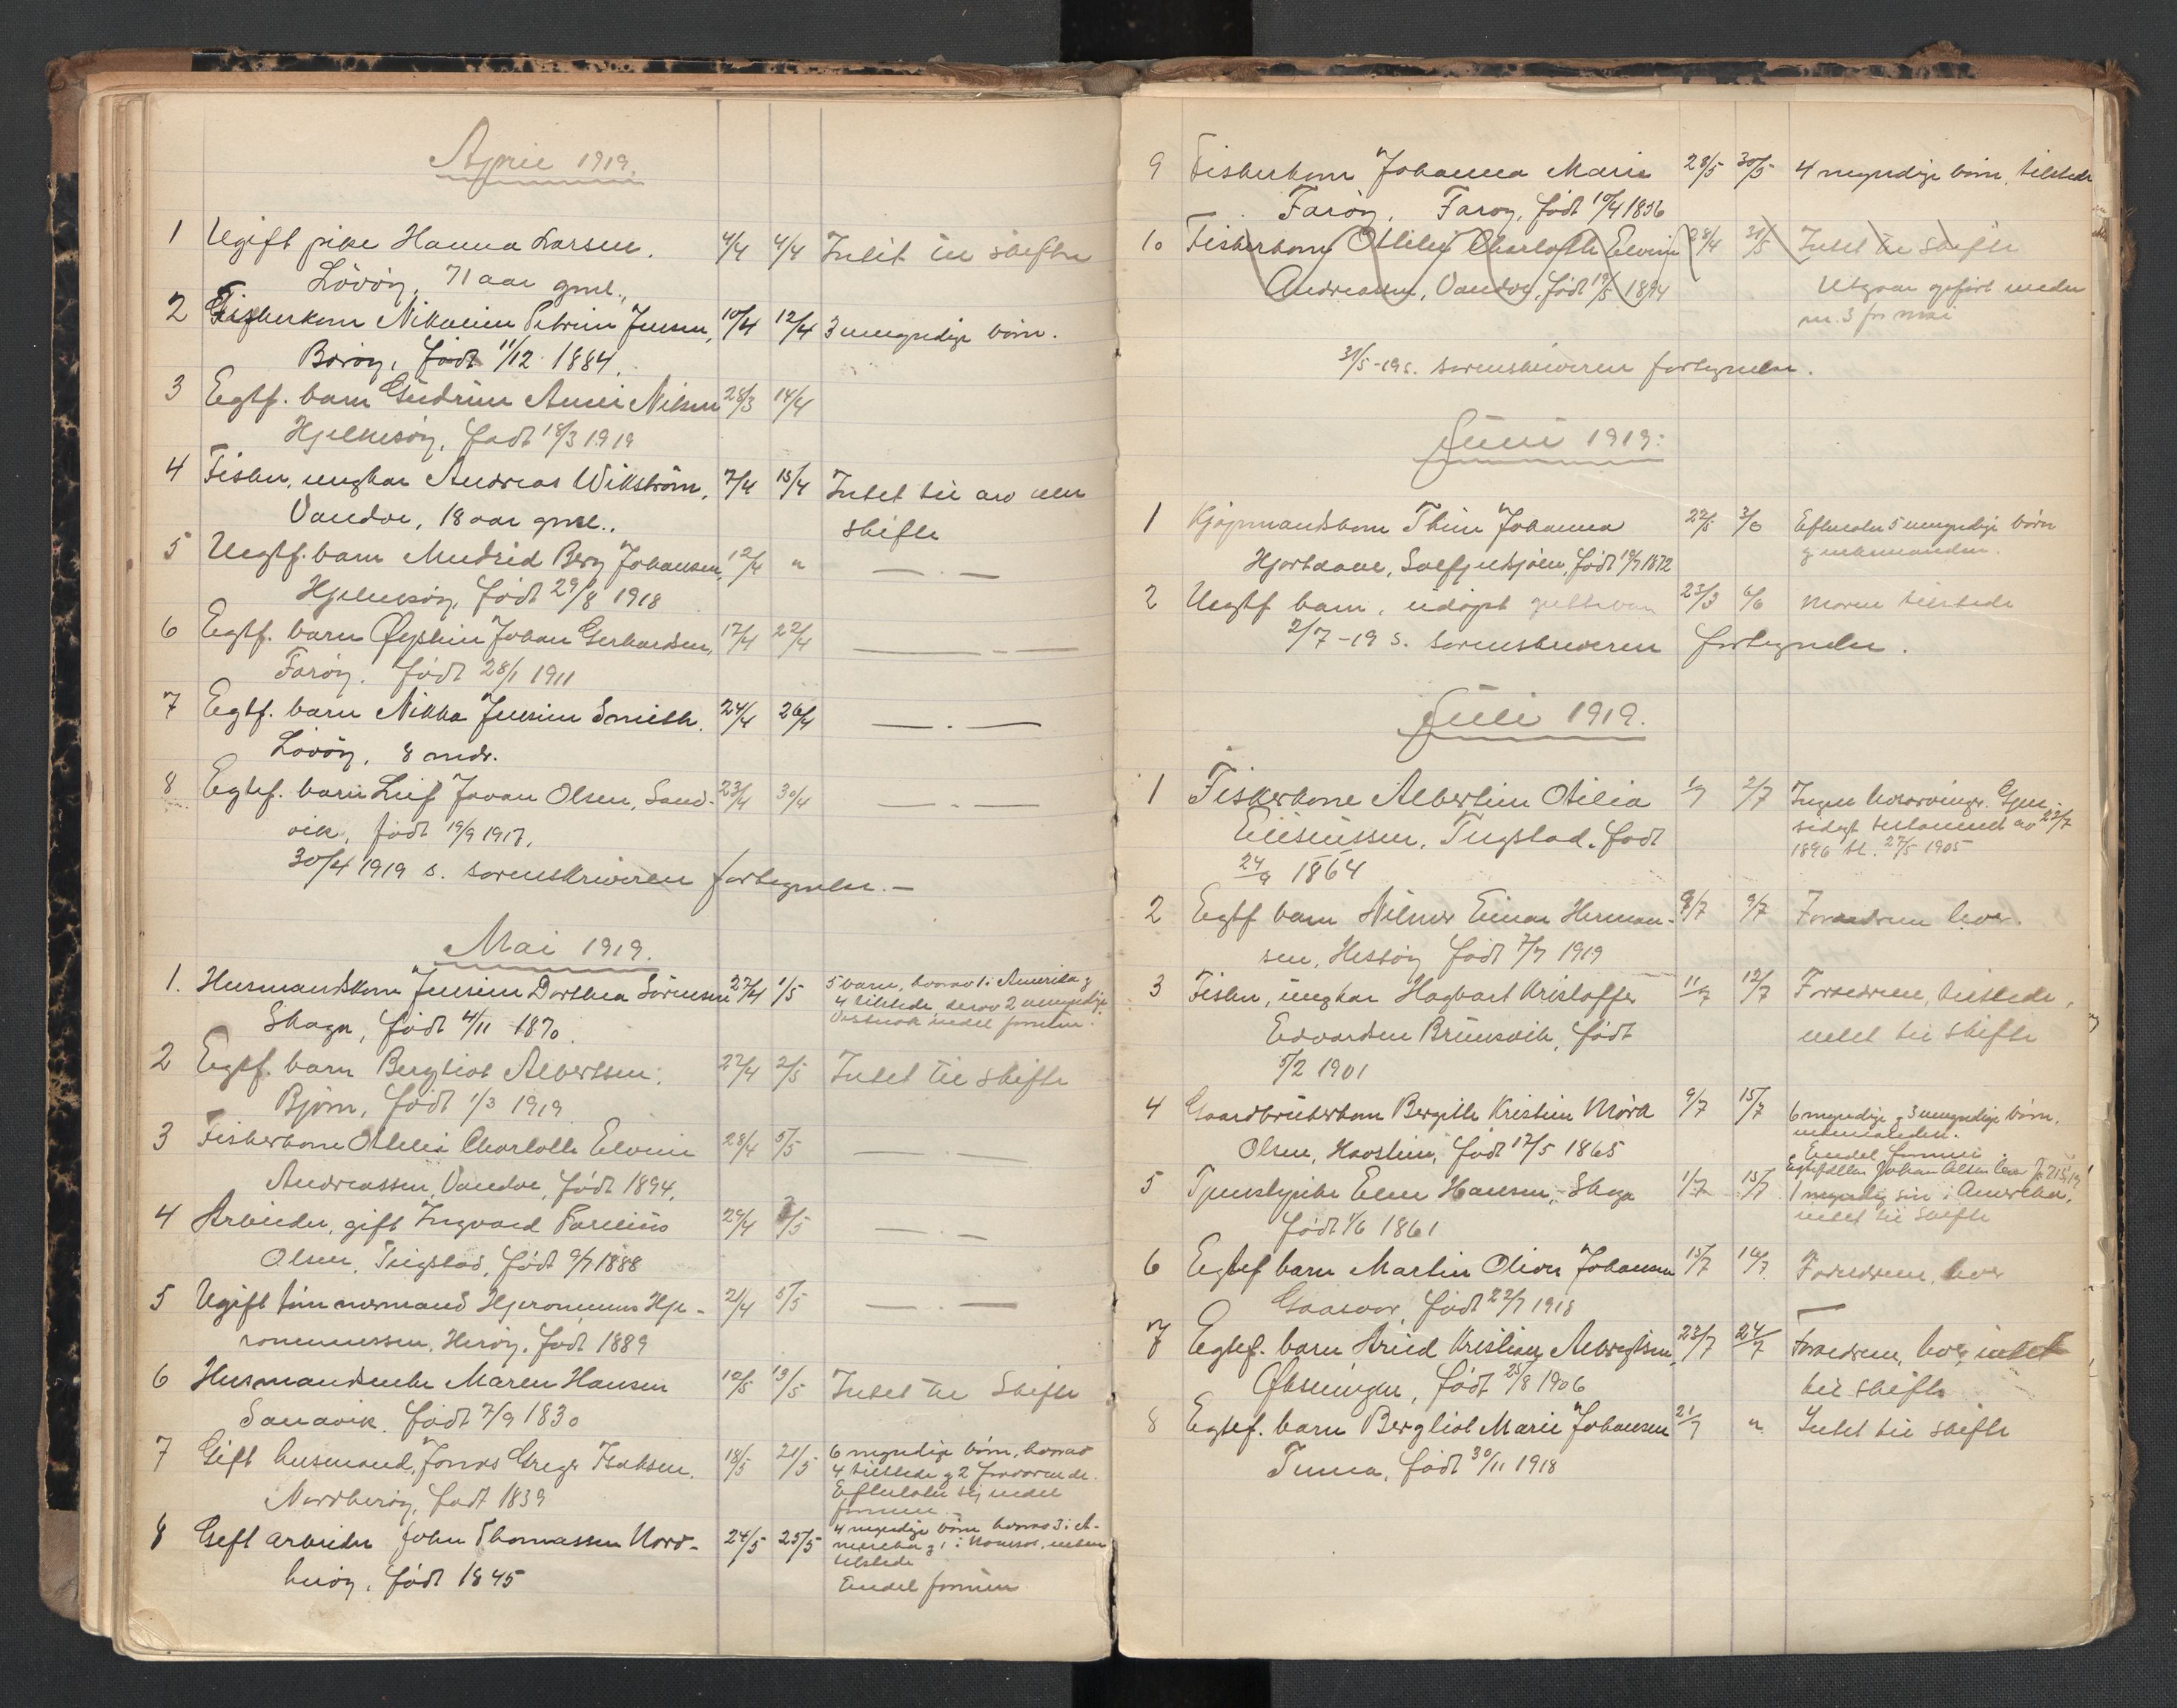 April 1919.
1 Ugift pike Hanna Larsen. 4/4 4/4 Intet til skifte
Lövöy, 71 aar gml.,
2 Fiskerkone Nikoline Petrine Jensen, 10/4 12/4 3 umyndige börn.
Boröy, født 11/12 1884.
3 Egtf. barn Gudrun Anni Nilsen 28/3 14/4
Hjelmsöy, født 18/3 1919
4 Fisker, ungkar Andreas Wikström, 7/4 15/4 Intet til arv eller
Vandve, 18 aar gml.. skifte
5 Uegtf. barn Mudrid Berg Johansen, 12/4 " — . —
Hjelmsöy, født 29/8 1918
6 Egtf. barn Øystein Johan Gerhardsen, 17/4 22/4 — . —
Faröy. født 28/1 1911
7 Egtf. barn Nikka Jensine Smith. 24/4 26/4 — . —
Lövöy, 8 mdr.
8 Egtef. barn Leif Johan Olsen, Sand- 23/4 30/4 — . —
vik, født 19/9 1917.
30/4 1919 s. sorenskriveren fortegnelse. —
Mai 1919.
1. Husmandskone Jensine Dorthea Sörensen 27/4 1/5 5 barn, hvorav 1 i Amerika og
Skaga, født 4/11 1870. 4 tilstede derav 2 umyndige.
2 Egtf. barn Bergliot Albertsen. 27/4 2/5 Intet til skifte
Bjørn, født 1/3 1919
3 Fiskerkone Otilie Charlotte Elvine 28/4 5/5 — . —
Andreassen, Vandve, født 1894.
4 Arbeider, gift Ingvard Parelius 29/4 /5 — . —
Olsen, Tingstad, født 9/7 1888
5 Ugift tömmermand Hjeronimus Hje- 21/4 5/5 — . —
ronimussen, Heröy. født 1889
6 Husmandsenke Maren Hansen 12/5 19/5 Intet til Skifte
Sandvik. født 7/9 1830
7 Gift husmand, Jonas Greger Isaksen. 18/5 21/5 6 myndige börn, hvorav
Nordheröy, født 1839 4 tilstede og 2 fraværende.
Efterlater sig endel
formue.
8 Gift arbeider John Thomassen Nord- 24/5 25/5 4 myndige börn hvorav 3 i A-
heröy, født 1845 merika og 1 i
tilstede
Endel formue
9 Fiskerkone Johanna Marie 28/5 30/5 4 myndige börn, tilstede
Faröy, Faröy, født 10/4 1856
10 Fiskerkone Otilie Charlotte Elvine 28/4 31/5 Intet til skifte
Andreassen, Vandve, født 19/5 1894 Utgaar opført under
nr. 3 for mai
31/5-19 s. sorenskriveren fortegnelse.
Juni 1919.
1 Kjøpmandskone Thine Johanna 22/5 3/6 Efterlater 5 umyndige börn
Hjortdave, Solfjeldsjøen, født 19/7 1872 og enkemanden.
2 Uegtf barn, udøpt guttebarn 23/3 6/6 Moren tilstede
2/7-19 s. sorenskriveren fortegnelse.
Juli 1919.
1 Fiskerkone Albertine Otilia 1/7 2/7 Ingen livsarvinger. Gjen-
Eliseussen, Tingstad. født sidigt testament av 23/7
24/9 1864 1896 tl. 27/5 1905
2 Egtf barn Hilmer Einar Herman- 9/7 9/7 Forældrene lever.
sen, Hestöy født 7/7 1919
3 Fisker, ungkar Hagbart Kristoffer 11/7 12/7 Forældrene tilstede,
Edvardsen Brunsvik, født intet til skifte
5/2 1901
4 Gaardbrukerkone Bergitte Kristine Mörk 9/7 15/7 6 myndige og 3 umyndige börn.
Olsen, Havstein, født 17/5 1865 enkemanden.
Endel formue.
Egtefællen Johan Olsen lever
5 Tjenestepike Elen Hansen, Skaga 1/7 15/7 1 myndig sön i Amerika,
født 1/6 1861 intet til skifte
6 Egtef barn Martin Oliver Johansen 15/7 16/7 Forældrene lever
Gaasvær, født 22/7 1918
7 Egtef. barn Arvid Kristian Albregtsen, 23/7 24/7 Forældrene lever, intet
Øksningen, født 25/8 1906 til skifte
8 Egtef. barn Bergliot Marie Johansen 21/7 " Intet til skifte
Tenna, født 30/11 1918